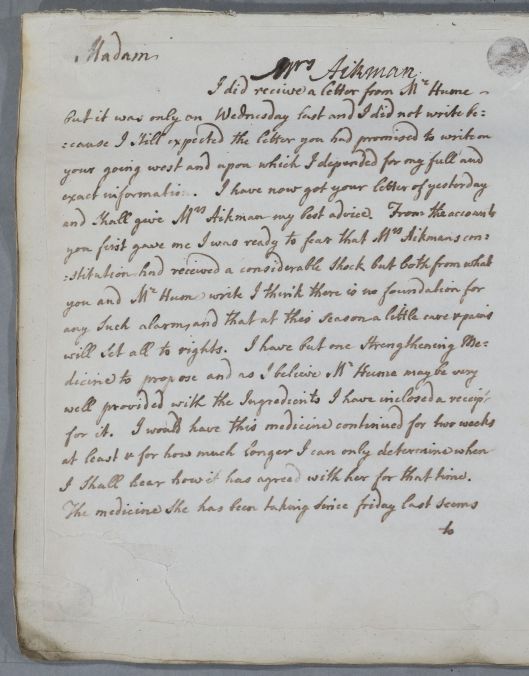 Madam
Mrs Aikman
I did receive a letter from Mr Hume
but it was only on Wednesday last and I did not write be:
:cause I still expected the letter you had promised to write on
your going west and upon which I depended for my full and
exact information. I have now got your letter of yesterday
and shall give Mrs Aikman my best advice. From the accounts
you first gave me I was ready to fear that Mrs Aikmans con:
:stitution had received a considerable shock but both from what
you and Mr Hume write I think there is no foundation for
any such alarm, and that at this season a little care & pains
will set all to rights. I have but one strengthening Me:
dicine to propose and as I believe Mr Hume may be very
well provided with the Ingredients I have inclosed a receipt
for it. I would have this medicine continued for two weeks
at least & for how much longer I can only determine when
I shall hear how it has agreed with her for that time.
The medicine she has been taking since friday last seems
to